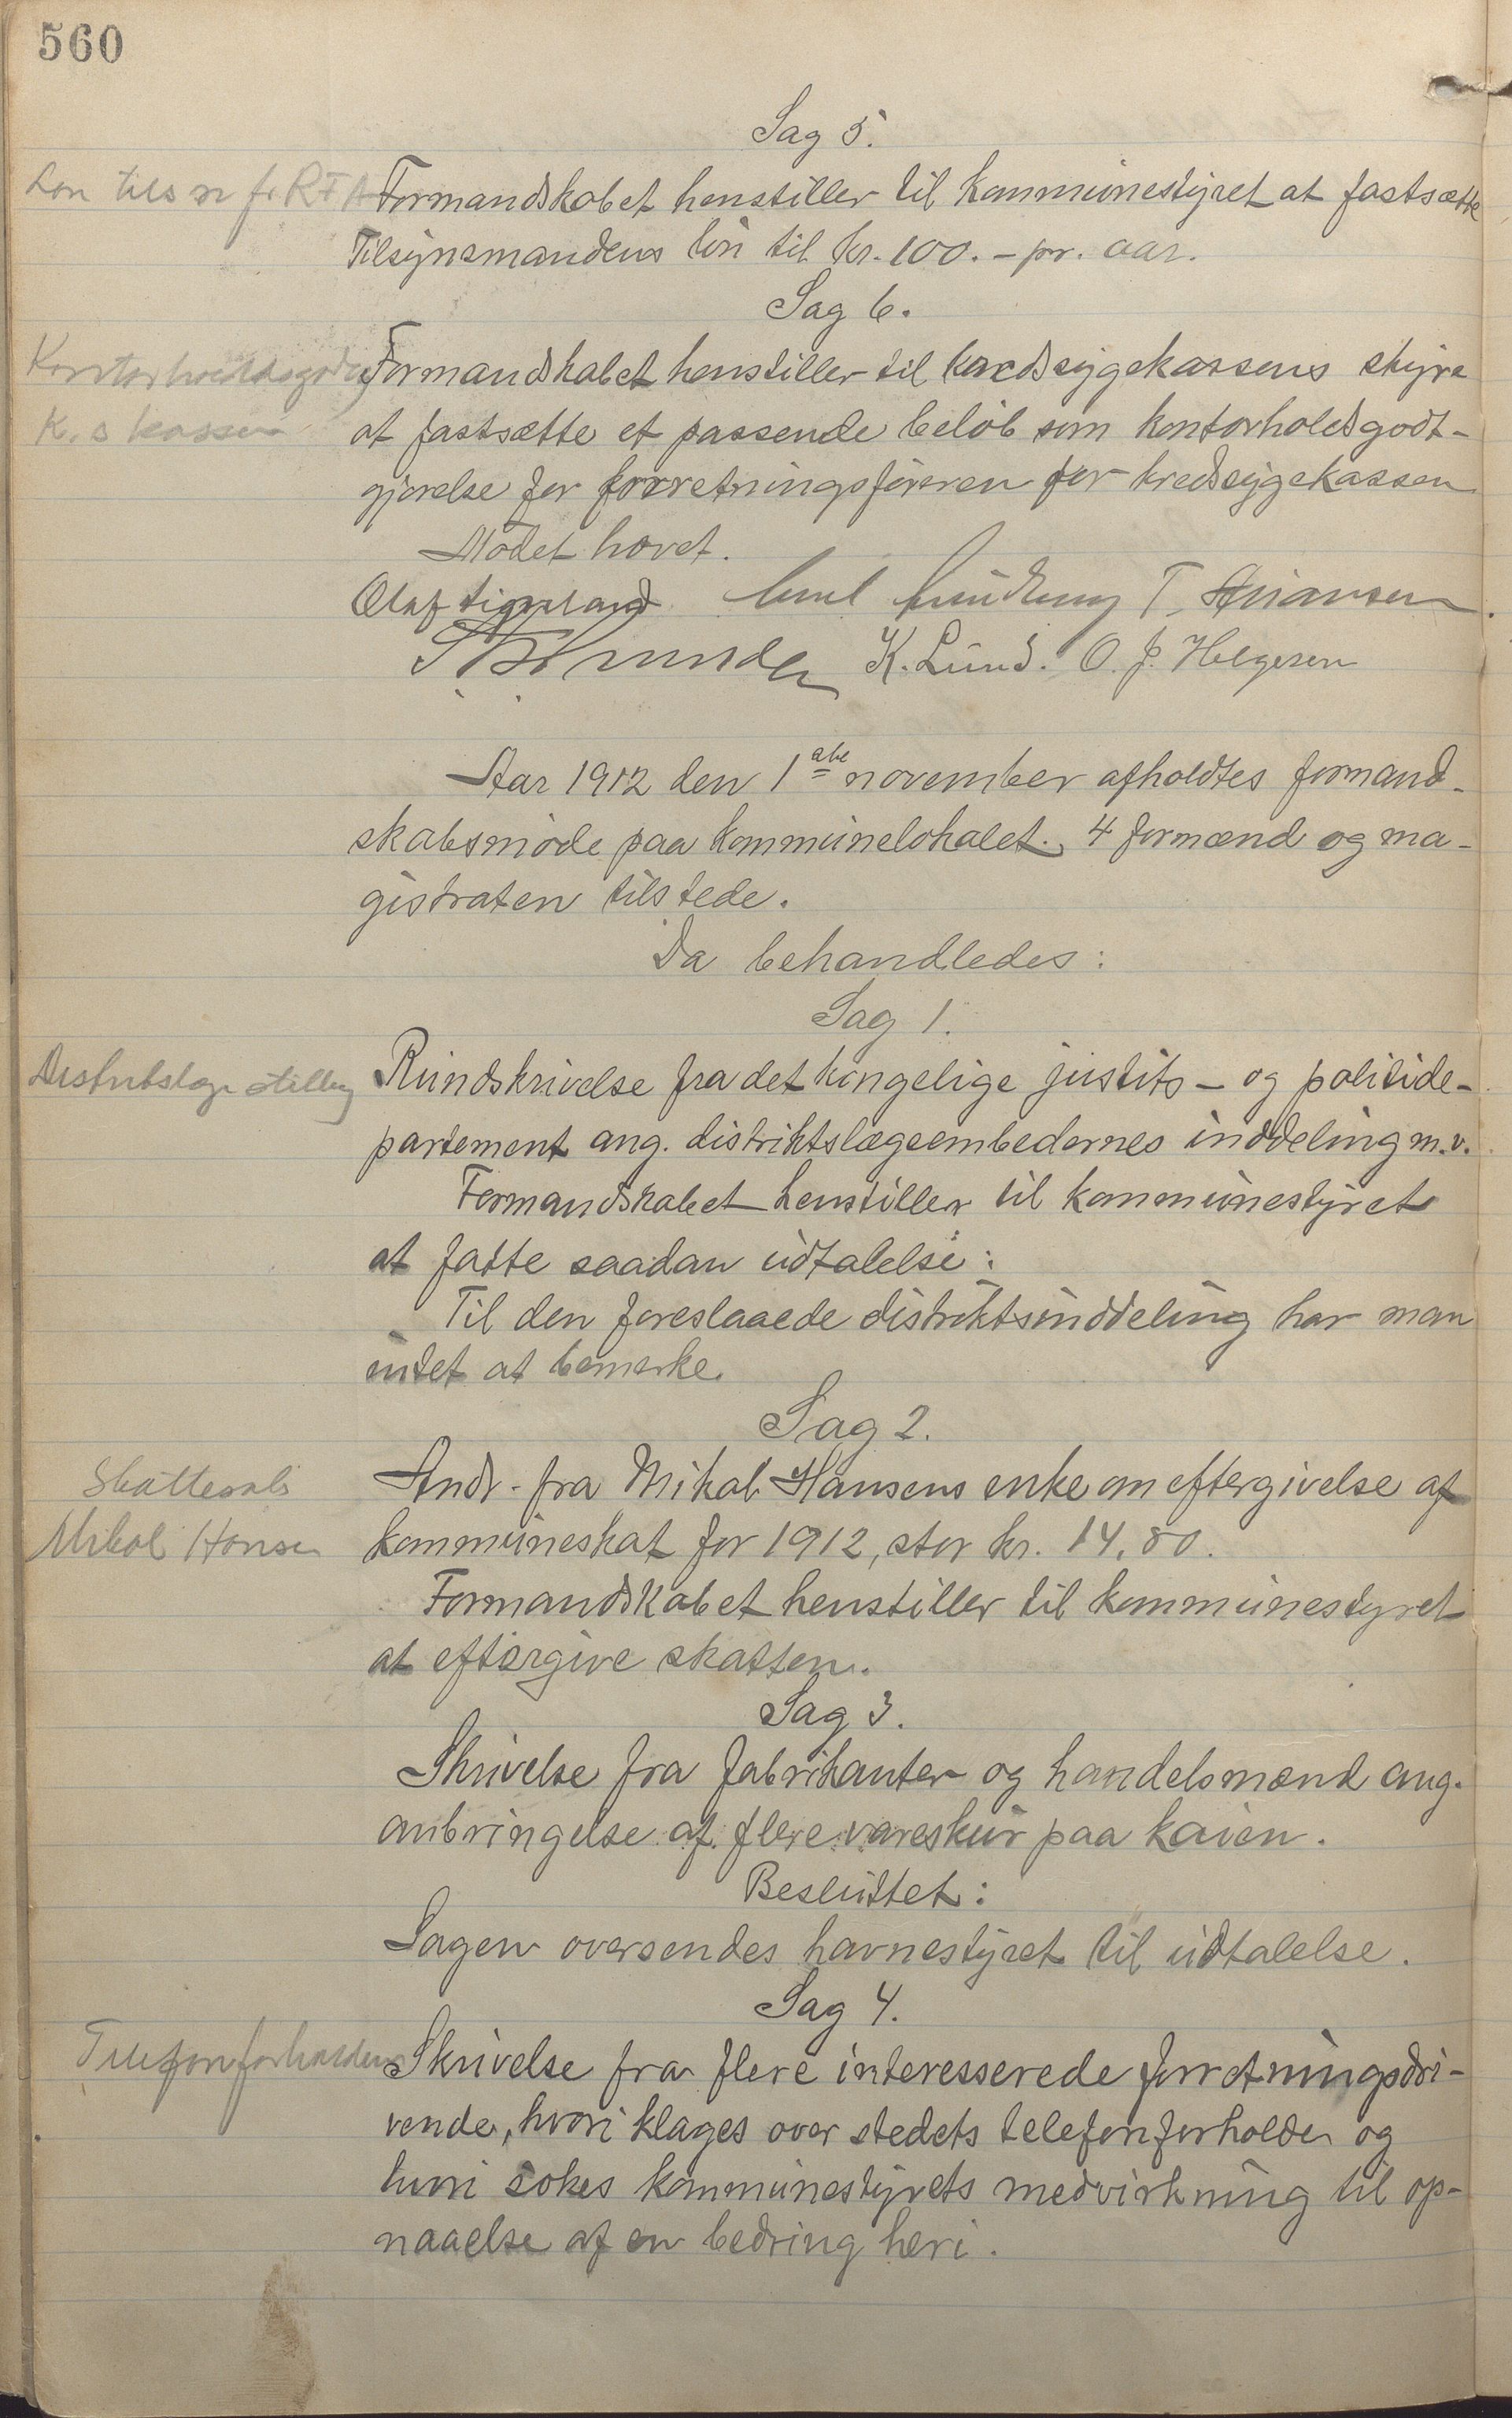 560
Sag 5.
Løn tils n f. R F A
Formandskabet henstiller til kommunestyret at fastsætte
Tilsynsmandens løn til kr. 100.- pr. aar.
Sag 6.
Kontorholdsgodtg
K. s kassen
Formandskabet henstiller til kredssygekassens styre
at fastsætte et passende beløb som kontorholdsgodt-
gjørelse for forretningsføreren for kredssygekassen
Mødet hævet.
Olaf Tigerland Emil T.
K. Lund. O. J. Helgesen
Aar 1912 den 1ste november afholdtes formand-
skabsmøde paa kommunelokalet. 4 formænd og ma-
gistraten tilstede.
Da behandledes:
Sag 1.
Distriktslæge stilling
Rundskrivelse fra det kongelige justits- og politide-
partement ang. distriktslægeembedernes inddeling m.v.
Formandskabet henstiller til kommunestyret
at fatte saadan udtalelse:
Til den foreslaaede distriktsinddeling har man
intet at bemerke.
Sag 2.
Skattesak
Mikal Hansen
Andr. fra Mikal Hansens enke om eftergivelse af
kommuneskat for 1912, stor kr. 14,80.
Formandskabet henstiller til kommunestyret
at eftergive skatten.
Sag 3.
Skrivelse fra fabrikanter og handelsmænd ang.
anbringelse af flere vareskur paa kaien.
Besluttet:
Sagen oversendes havnestyret til udtalelse.
Sag 4.
Telefonforholdene
Skrivelse fra flere interesserede forretningsdri-
vende, hvori klages over stedets telefonforholde og
hvori søkes kommunestyrets medvirkning til op-
naaelse af en bedring heri.